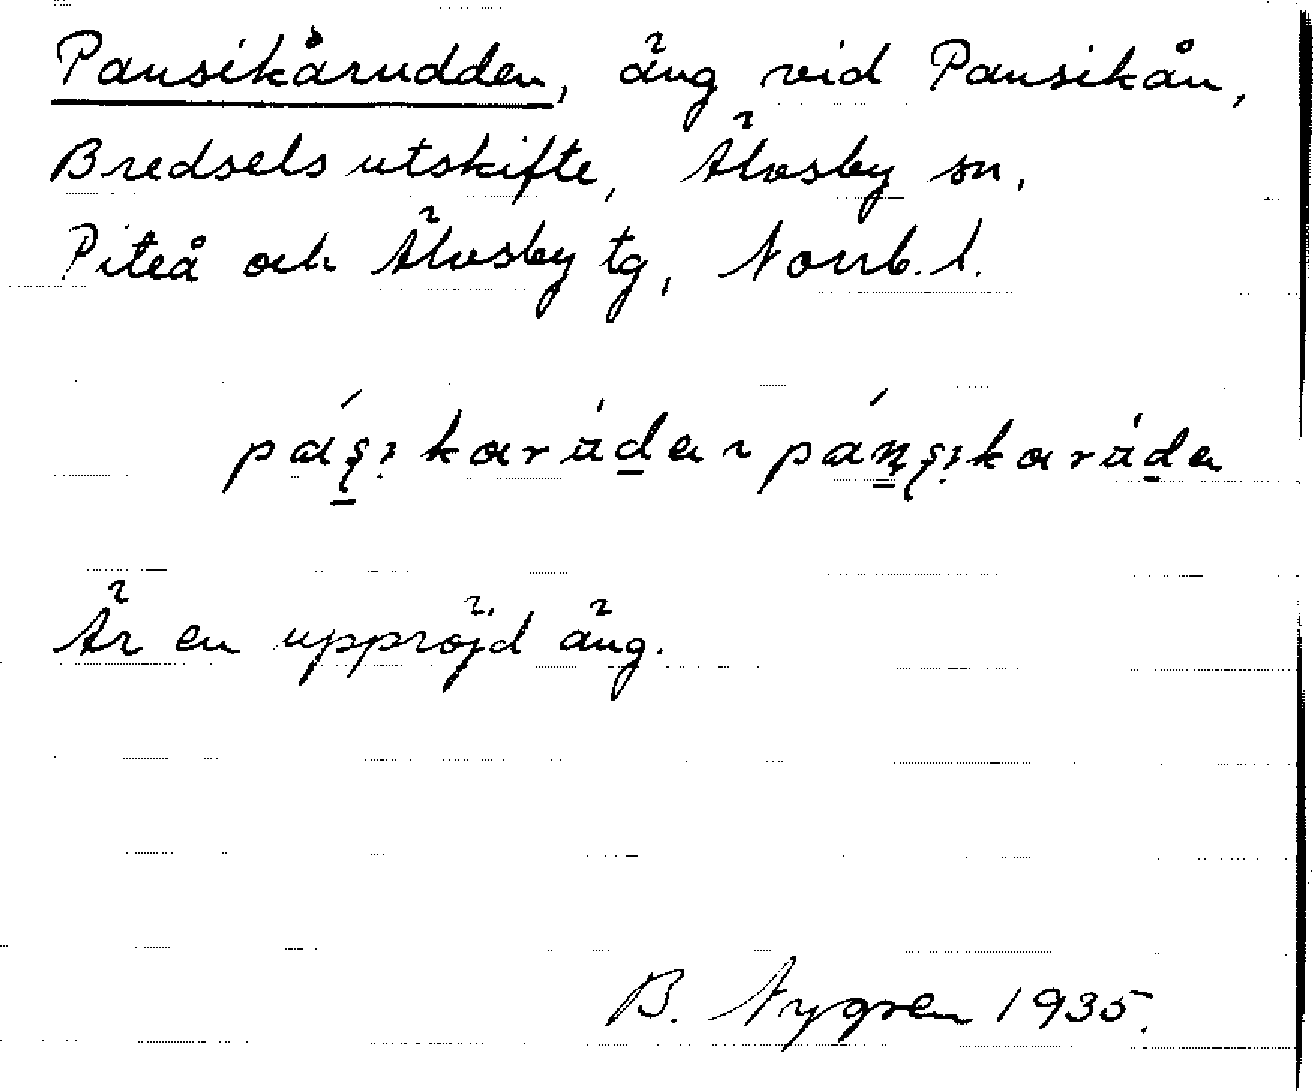 Pansikårudden, äng vid Pansikån,
Bredsels utskifte, Älvsby sn,
Piteå och Älvsby tg, Norrb. l.
Är en uppröjd äng.
B. Nygren 1935.